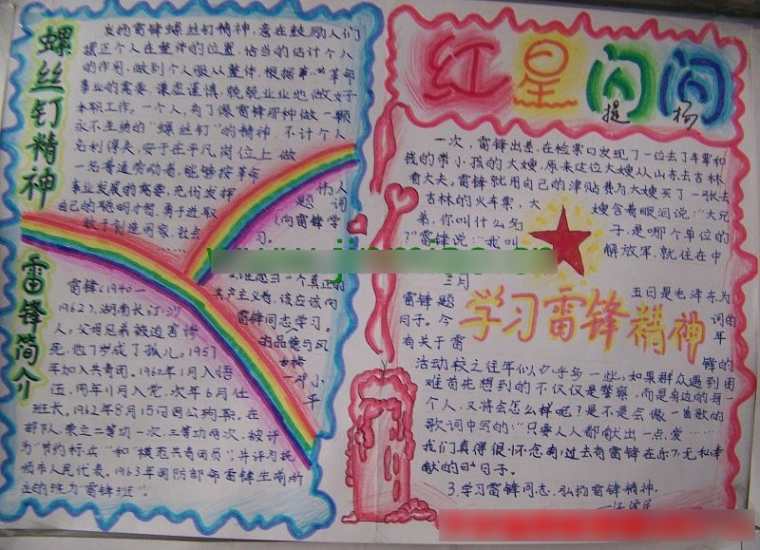 螺丝钉精神
发扬雷锋螺丝钉精神,意在鼓励人们
摆正个人在整体的位置,恰当的估计个人
的作用,做到个人服从整体,根据革命
事业的需要,谦虚谨慎,兢兢业业地做好
本职工作。一个人,有了像雷锋那种做一颗
永不生锈的“螺丝钉”的精神,不计个人
名利得失,安于在平凡岗位上做
一名普通劳动者,能够按革命
事业发展的需要,充份发挥
自己的聪明才智,勇于进取
敢于创造
伟人
题词
(向雷锋学
习。
一个真正的
共产主义者,该应该向
雷锋同志学习。
邓小
平
雷锋简介
雷锋(1940-
1962),湖南长沙
人,父母兄弟被迫害惨
死,他7岁成了孤儿。1957
年加入共青团。1962年1月入伍
伍,同年11月入党,次年6月任
班长。1962年8月15日因公殉职。在
部队,荣立二等功一次,三等功两次,被评
为“节约标兵”和“模范共青团员”,并评为抚
顺市人民代表。1963年国防部命雷锋生前所
在的班为“雷锋班”。
红星闪闪
提 杨
一次,雷锋出差,在检票口发现了一位丢了车票和
钱的带小孩的大嫂,原来这位大嫂从山东去吉林
看丈夫,雷锋就用自己的津贴费为大嫂买了一张去
吉林的火车票,大嫂含着眼泪说:“大兄
弟,你叫什么名子,是哪个单位的
?”雷锋说:“我叫解放军,就住在中
三月五日是毛泽东为
雷锋题词的
日子。今年
学习雷锋精神
有关于雷锋的
活动较之往年似乎多一些,如果群众遇到困
难首先想到的不仅仅是警察,而是身边的每一
个人,又将会怎么样呢?是不是会像一首歌的
歌词中写的:“只要人人都献出一点爱……
我们真得很怀念有过去有雷锋在乐于无私奉
献的日子。
3.学习雷锋同志,弘扬雷锋精神。